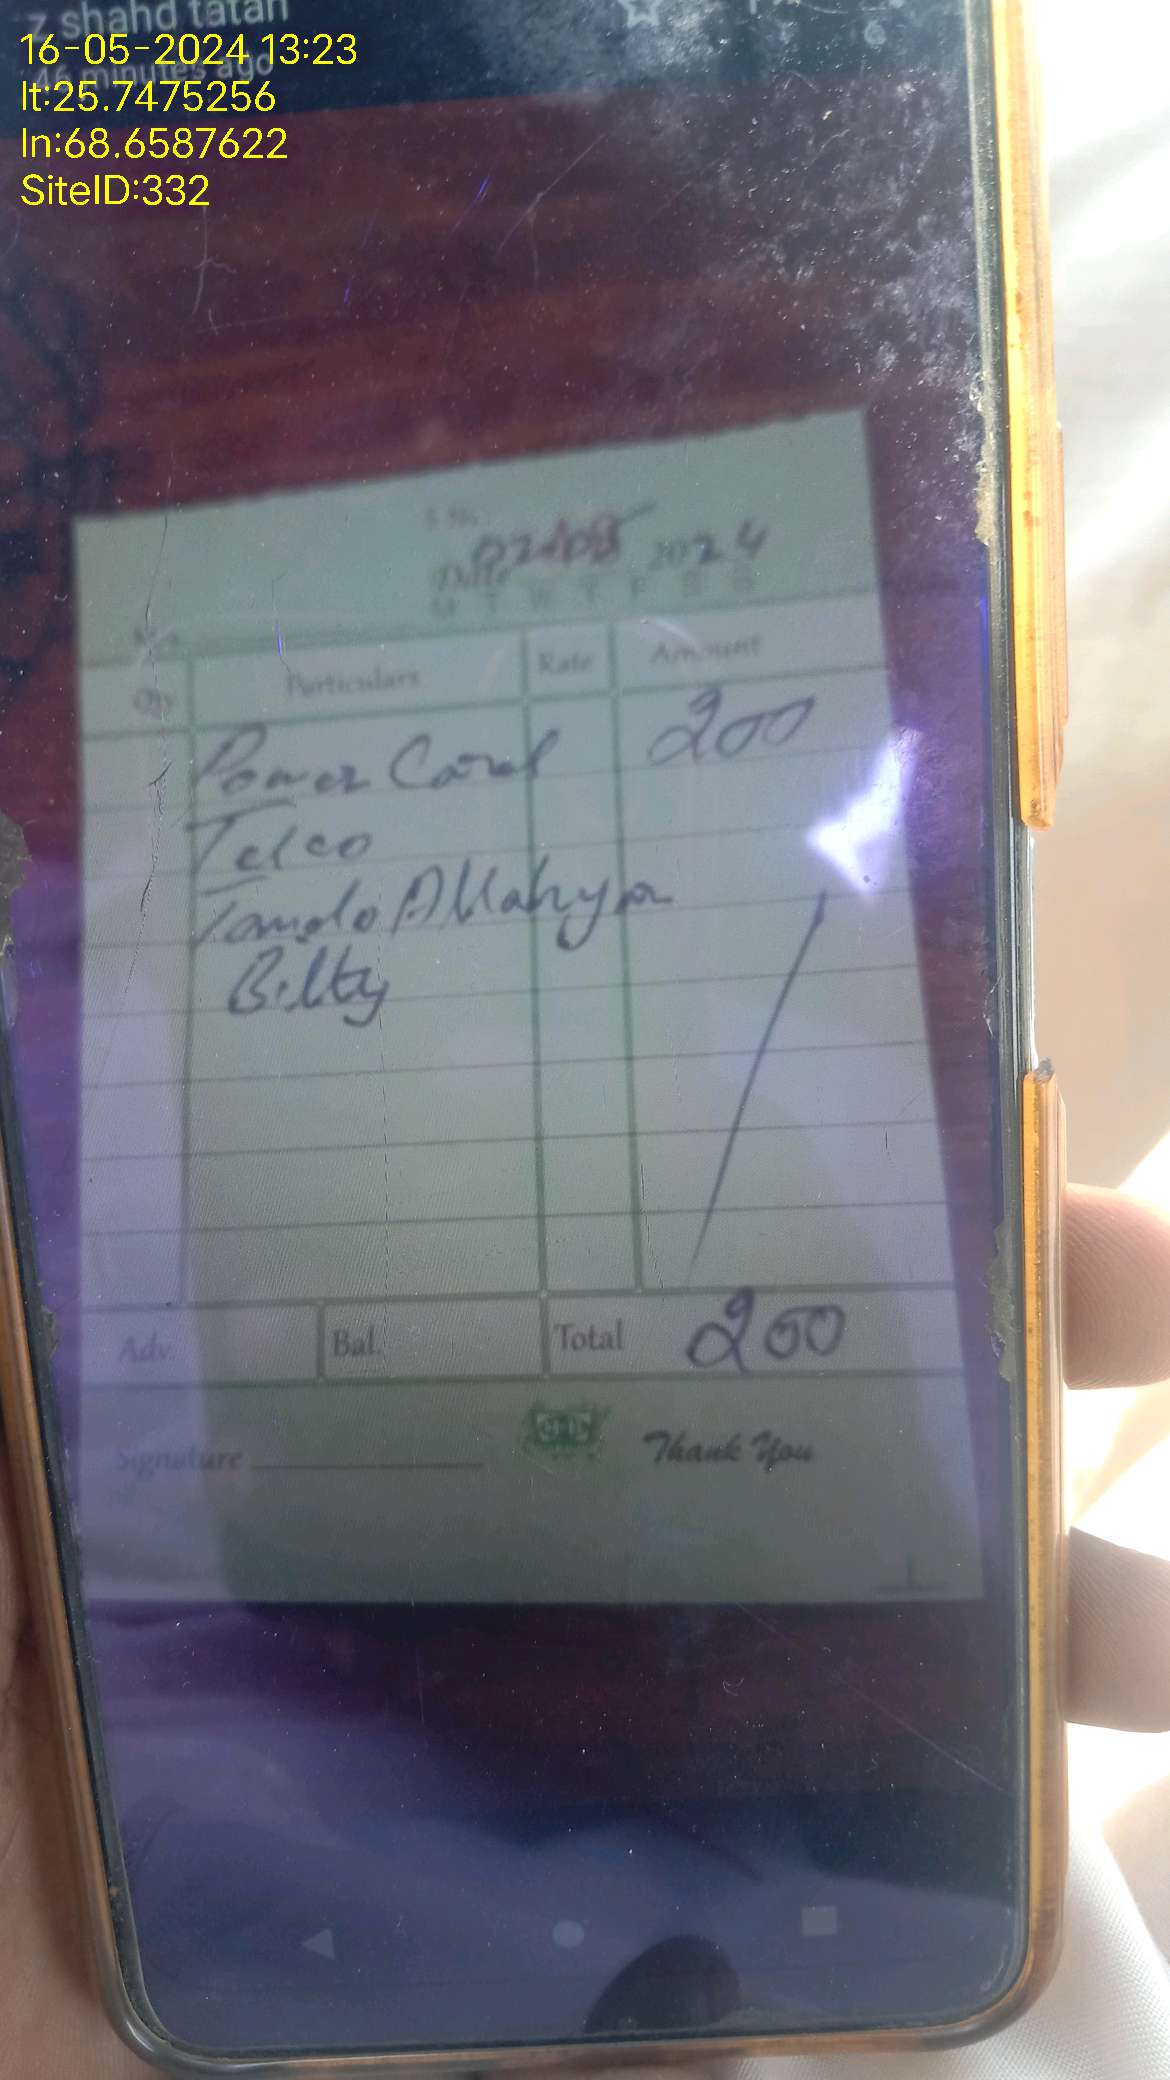 z shahd tatah
16-05-2024 13:23
46 minutes ago
lt:25.7475256
ln:68.6587622
SiteID:332
S. No.
Date 02/05 2024
M T W T F S S
M/s
Qty Particulars Rate Amount
Power Card 200
Telco
Tando Allahyar
Bilty
Adv. Bal. Total 200
Signature Thank You